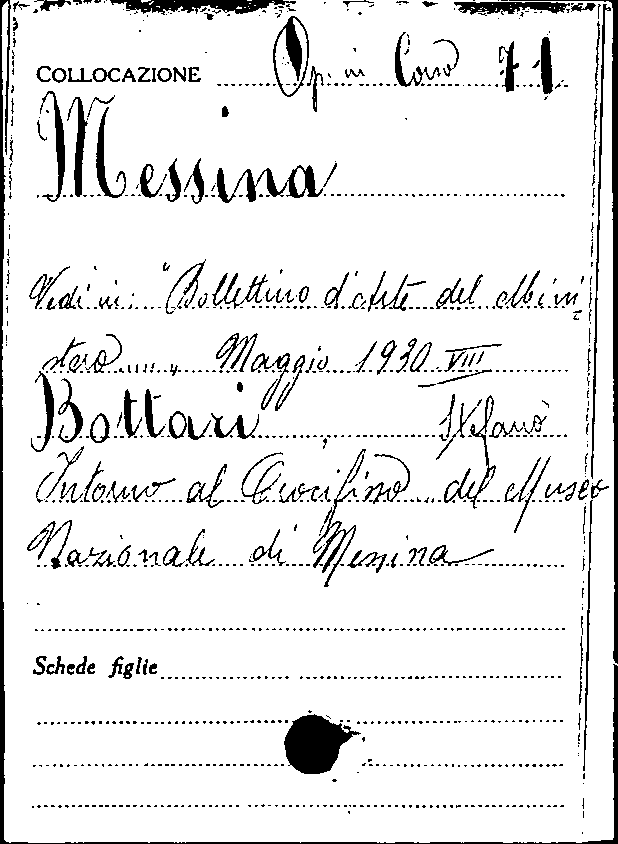 COLLOCAZIONE Op. in Corso 71
Messina
Vedi in: "Bollettino d'Arte del Mini-
stero....." Maggio 1930 VIII
Bottari, Stefano
Intorno al Crocifisso del Museo
Nazionale di Messina
Schede figlie